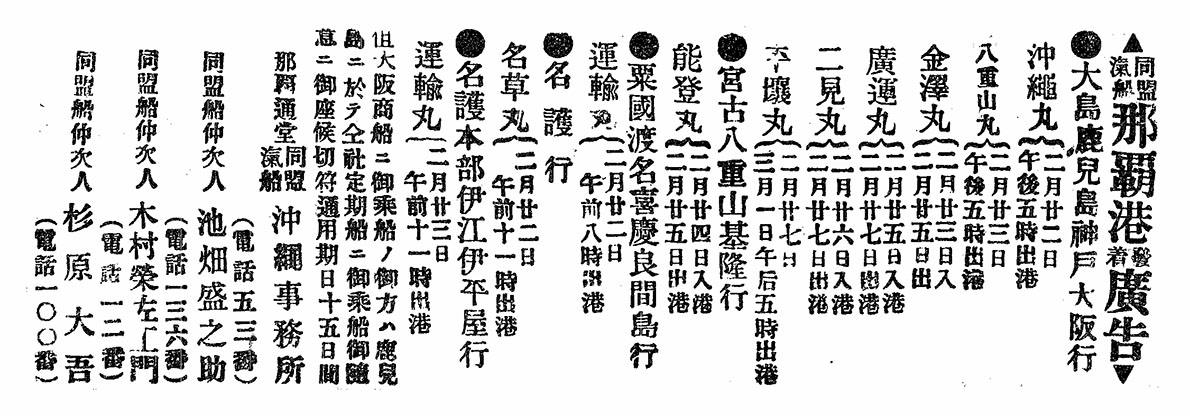 ▲同盟汽船那覇港發着廣告▼
●大島鹿兒島神戸大阪行
沖繩丸{二月廿二日午後五時出港
八重山丸{二月廿三日午後五時出港
金澤丸{二月廿三日入二月廿五日出
廣運丸{二月廿五日入港二月廿七日出港
二見丸{二月廿六日入港二月廿七日出港
平壤丸{二月廿七日三月一日午后五時出港
●宮古八重山基隆行
能登丸{二月廿四日入港二月廿五日出港
●粟國渡名喜慶良間島行
運輸丸{二月廿二日午前八時出港
●名護行
名草丸{二月廿二日午前十一時出港
●名護本部伊江伊平屋行
運輸丸{二月廿三日午前十一時出港
但大阪商船ニ御乘船ノ御方ハ鹿兒
島ニ於テ仝社定期船ニ御乘船御隨
意ニ御座候切符通用期日十五日間
那覇通堂同盟汽船沖繩事務所
(電話五三番)
同盟船仲次人池畑盛之助
(電話一三六番)
同盟船仲次人木村榮左工門
(電話一二番)
同盟船仲次人杉原大吾
(電話一〇〇番)